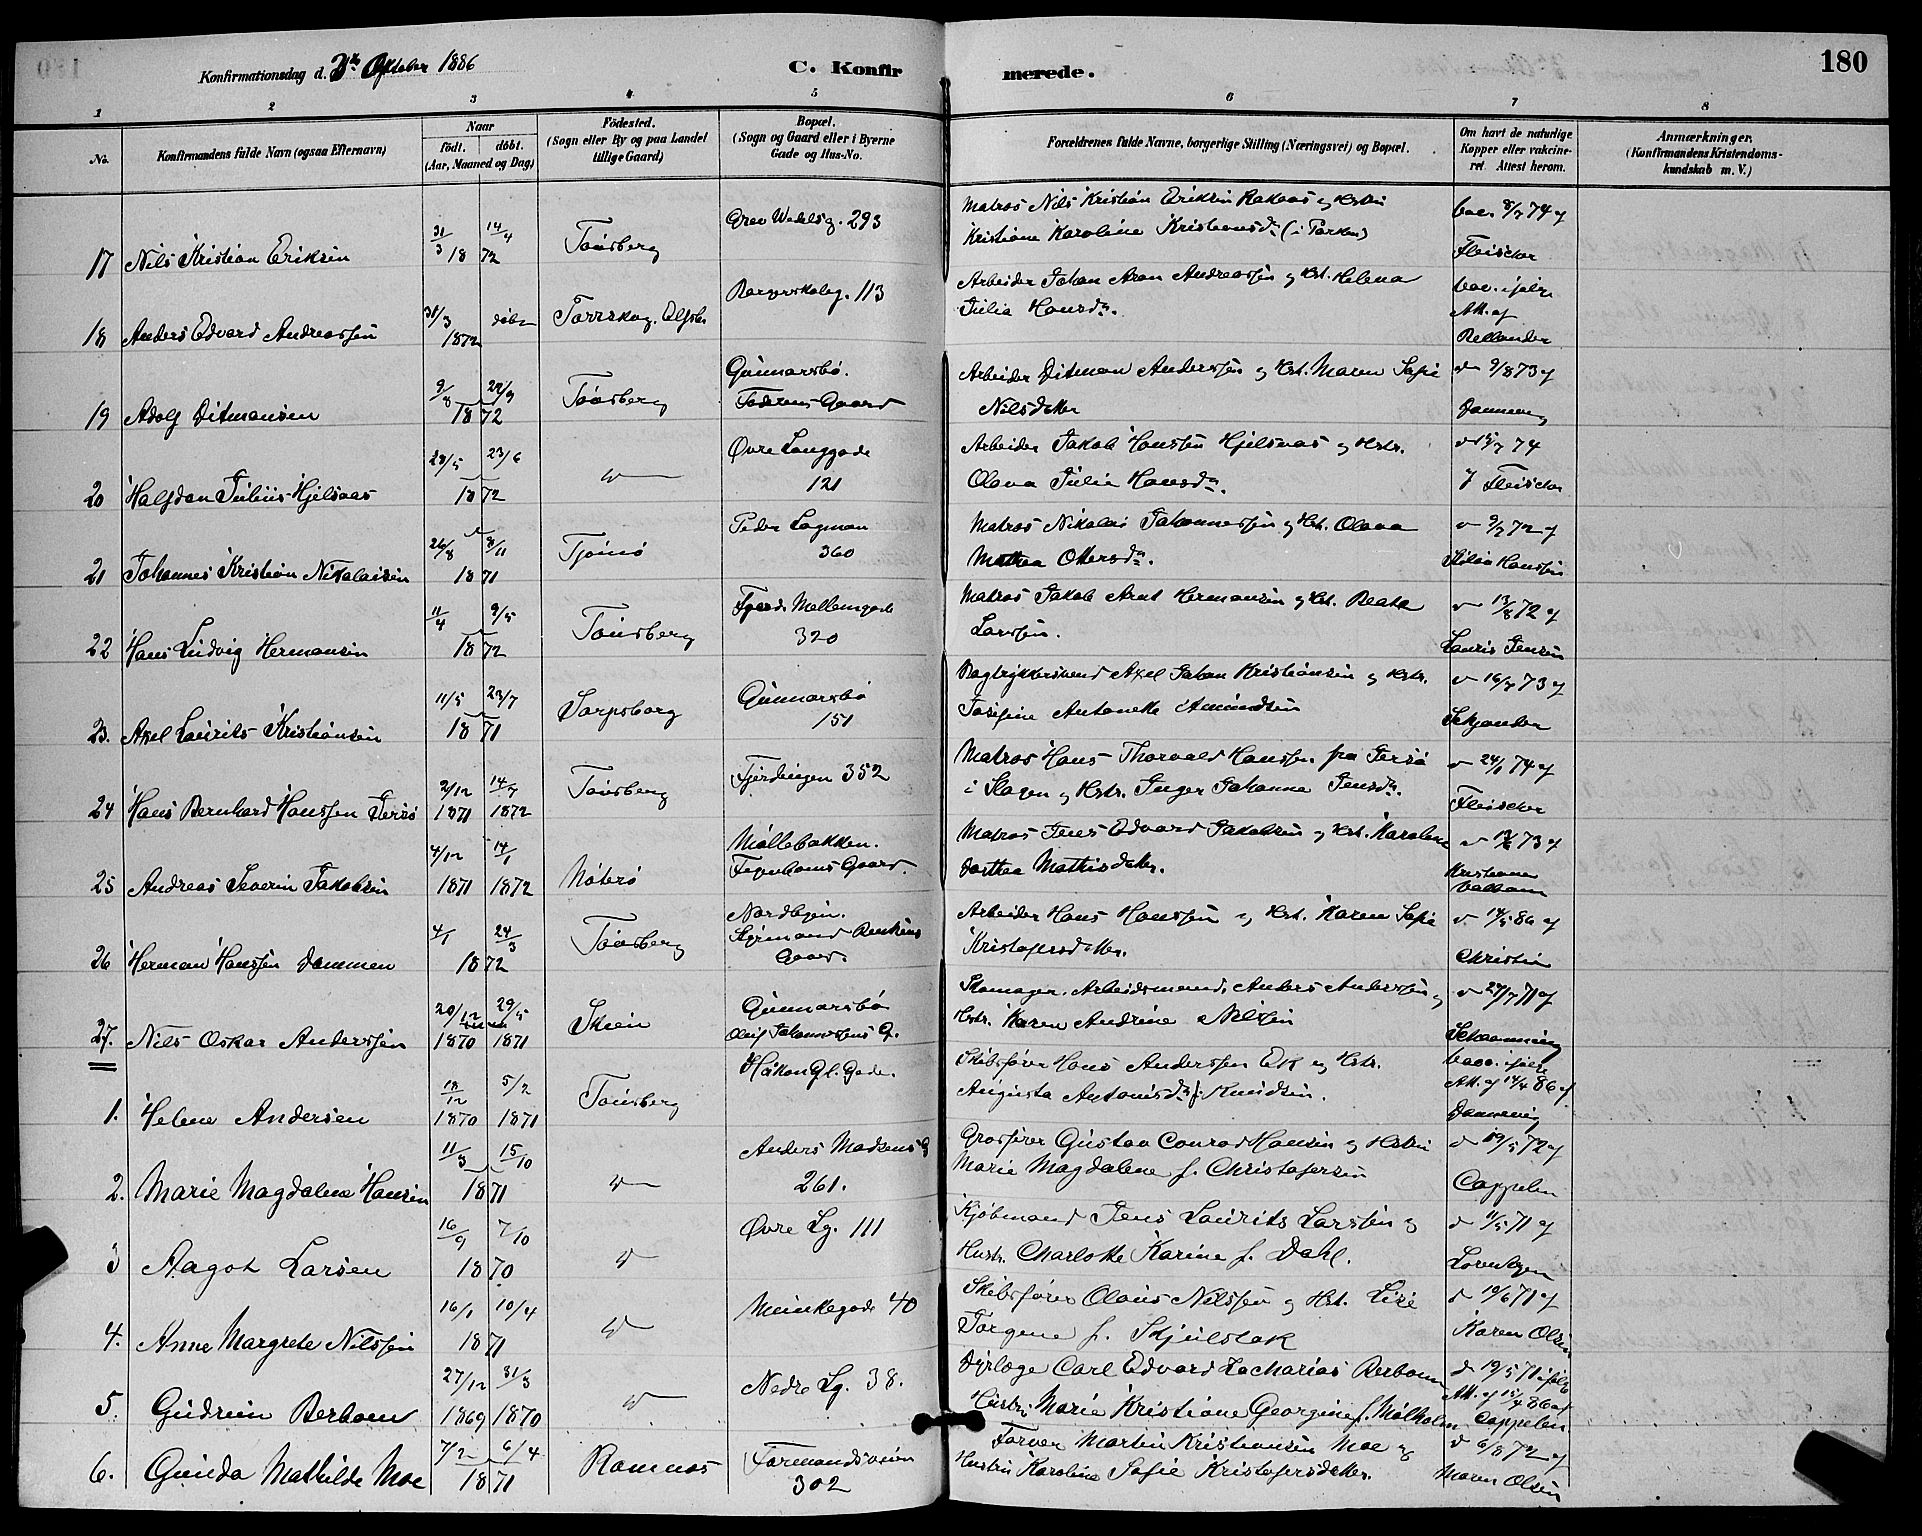 180
Konfirmationsdag d. 3die Oktober 1886
C. Konfir
merede.
1 2 3 4 5 6 7 8
No.
Konfirmandens fulde Navn (ogsaa Efternavn)
Naar
födt. döbt.
(Aar, Maaned og Dag)
Födested.
(Sogn eller By og paa Landet
tillige Gaard)
Bopæl.
(Sogn og Gaard eller i Byerne
Gade og Hus-No.
Forældrenes fulde Navne, borgerlige Stilling (Næringsvei) og Bopæl.
Om havt de naturlige
Kopper eller vakcine-
ret. Attest herom.
Anmærkninger.
(Konfirmandens Kristendoms-
kundskab m. V.)
17 Nils Kristian Eriksen 31/3 14/4 1872 Tønsberg Grev Wedelsg. 293
Matros Nils Kristian Eriksen og Hstru
Kristiane Karoline Kristensdr (i Parken)
vac. 8/7 74 af
Fleischer
18 Anders Edvard Andreassen 31/3 1872 døbt Torrskog
113
Arbeider Johan Aron Andreassen og Hst. Helena
Julia Hansdr.
vac. ifølge
Att. af
Rellander
19 Adolf Ditmansen 9/8 29/9 1872 Tønsberg Gunnarsbø.
Faderens Gaard
Arbeider Ditman Anderssen og Hst. Maren Sofie
Nilsdatter
9/8 73 af
Dannevig
20 Halfdan Julius Hjelsaas 28/5 23/6 1872 Øvre Langgade
121
Arbeider Jakob Hanssen Hjelsaas og Hstr.
Olava Julia Hansdr.
74
f Fleischer
21 Johannes Kristian Nikolaisen 26/8 8/11 1871 Tjømø Peder Lagman
360
Matros Nikolai Johannessen og Hst. Olava
Mathea Ottersdr.
9/7 72 af
Hanssen
22 Hans Ludvig Hermansen 11/4 9/5 1872 Tønsberg Mellemgade
320
Matros Jakob Arnt Hermansen og Hst. Beate
Larssen.
13/8 72 af
Lauris Jensen
23. Axel Laurits Kristiansen 11/5 23/7 1871 Sarpsborg Gunnarsbø
151
Bogtrykkersvend Axel Johan Kristiansen og Hstr.
Josefine Antonette Amundsen
16/7 73 af
24 Hans Bernhard Hanssen Jersø 2/12 1871 14/7 1872 Tønsberg Fjerdingen 352
Matros Hans Thorvald Hanssen fra Jersø
i Slagen og Hstr. Inger Johanne Jensdr.
24/1 74 af
Fleischer
25 Andreas Severin Jakobsen 4/12 1871 14/1 1872 Nøterø Møllebakken.
Gaard.
Matros Jens Edvard Jakobsen og Hst. Karoline
Dorthea Mathisdatter.
73 af
Kristiane
26 Herman Hanssen Dammen 4/1 24/3 1872 Tønsberg Nordbyen.
Styrmand
Gaard.
Arbeider Hans Hanssen og Hst. Karen Sofie
Kristofersdatter.
14/5 86 af
Christie
27. Nils Oskar Anderssen 20/12 1870 29/5 1871 Skien Gunnarsbø
Oluf Johannesens G.
Skomager. Arbeidsmand, Anders Anderssen og
Hstr. Karen Andrine Nilsen
27/7 71 af
Schanning
1. Helene Andersen 18/12 1870 5/2 1871 Tønsberg Håkon Gl. Gade.
Skibsfører Hans Anderssen Eek og Hstr.
Augusta Antonisdr f. Knudsen.
vacc. ifølge
Att. af 14/4 86 af
Dannevig
2. Marie Magdalene Hansen 11/3 15/10 1871 Anders Madsens G
261.
Grosserer Gustav Conrad Hansen og Hstru
Marie Magdalene f. Christofersen
19/5 72 af
Cappelen
3 Aagot Larsen 16/9 7/10 1870 Øvre Lg. 111
Kjøbmand Jens Laurits Larsen og
Hustr. Charlotte Karine f. Dahl.
11/5 71 af
Lorentzen
4. Anne Margrete Nilssen 16/1 10/4 1871 Munkegade 40
Skibsfører Olaus Nilssen og Hst. Lise
Torgine f. Skjelstak
19/6 71 af
Karen Olsen
5. Gudrun Berbom 27/12 1869 31/3 1870 Nedre Lg. 38.
Dyrlæge Carl Edvard Zacharias Berboom
Hustru Marie Kristiane Georgine f. Mølholm
19/5 71 ifølge
Att. af 15/4 86 af
Cappelen
6. Gunda Mathilde Moe 7/2 6/4 1871 Ramnæs Formandsveien
302
Farver Martin Kristiansen Moe og
Hustru Karoline Sofie Kristofersdatter.
6/8 72 af
Maren Olsen